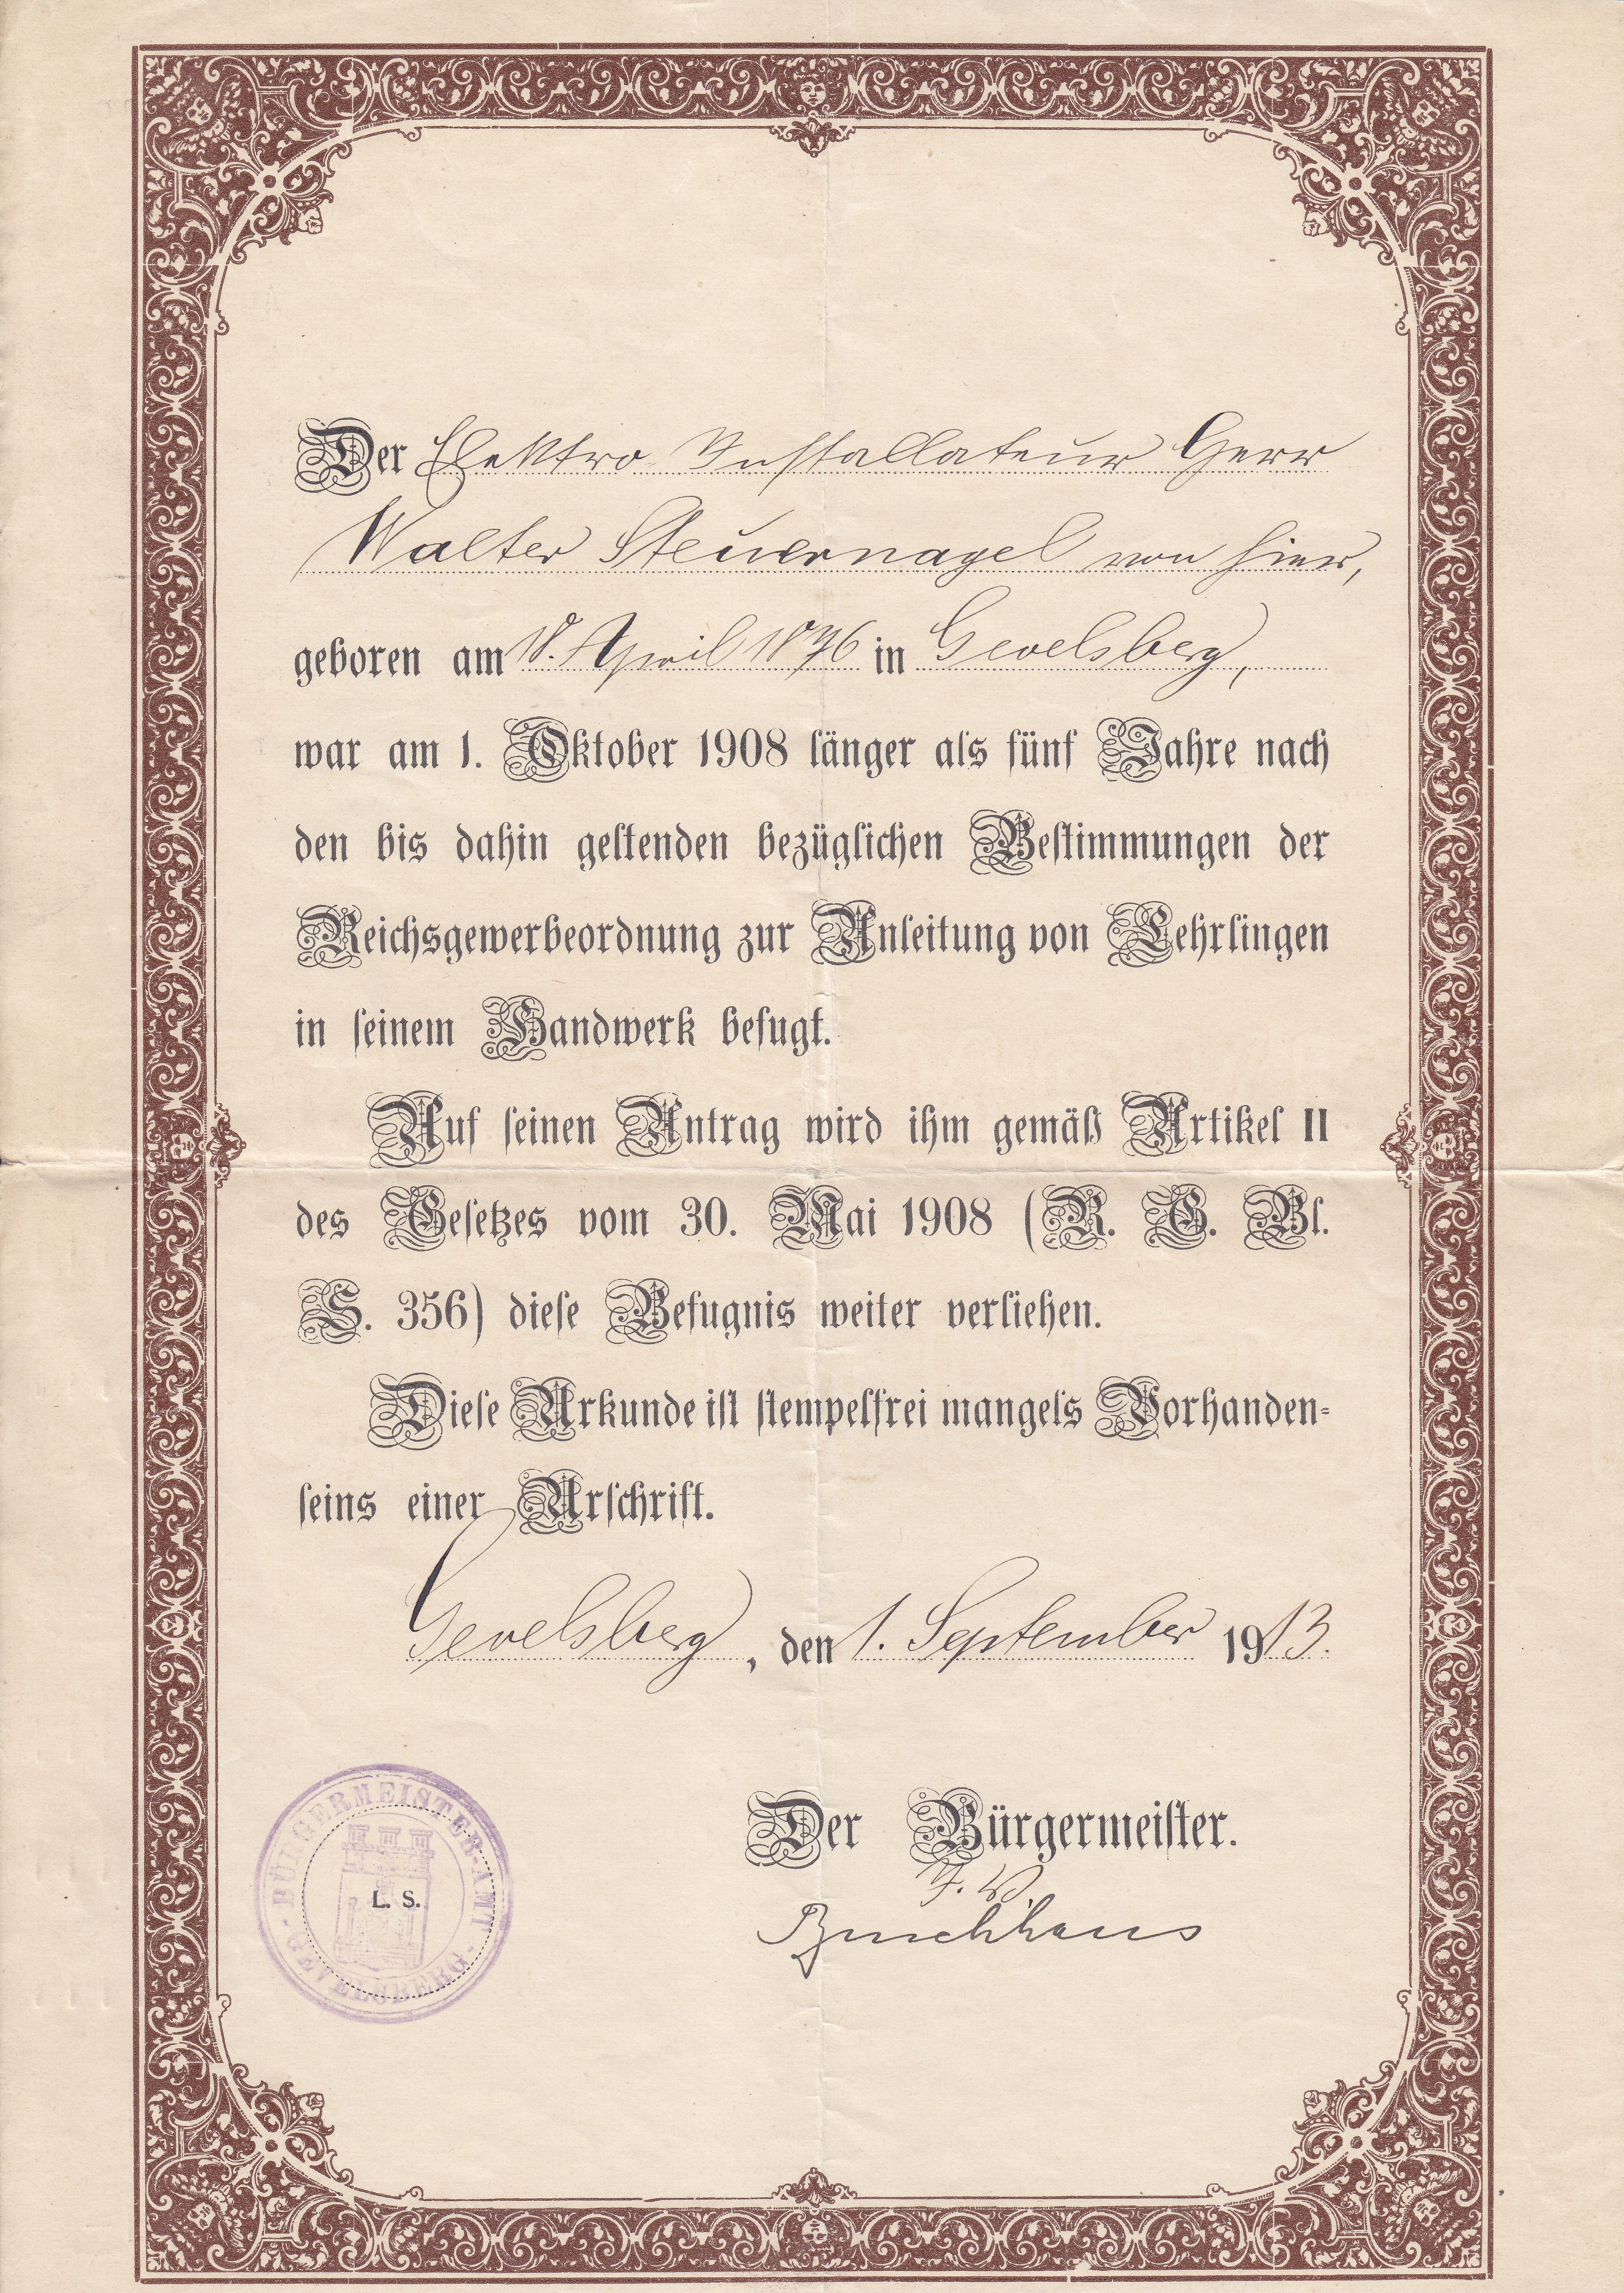 Der Elektro Installateur Herr
Walter Steuernagel von hier,
geboren am 18. April 1876 in Gevelsberg,
war am 1. Oktober 1908 länger als fünf Jahre nach
den bis dahin geltenden bezüglichen Bestimmungen der
Reichsgewerbeordnung zur Anleitung von Lehrlingen
in seinem Handwerk befugt.
Auf seinen Antrag wird ihm gemäß Artikel II
des Gesetzes vom 30. Mai 1908 (R. G. Bl.
S. 356) diese Befugnis weiter verliehen.
Diese Urkunde ist stempelfrei mangels Vorhanden-
seins einer Urschrift.
Gevelsberg, den 1. September 1913.
Der Bürgermeister.
BÜRGERMEISTER-AMT
L. S.
GEVELSBERG